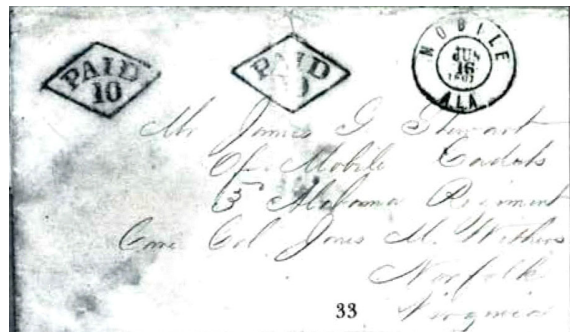 PAID
10
PAID
10
MOBILE
JUN
16
1861
ALA.
Mr James G. Stewart
Of Mobile Cadets
3d Alabama Regiment
Care Col Jones M. Withers
Norfolk
Virginia
33